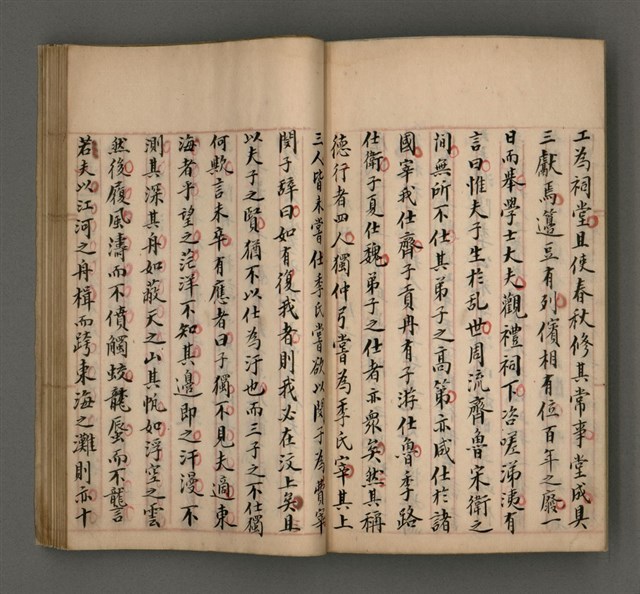 工為祠堂且使春秋修其常事堂成具
三獻焉籩豆有列儐相有位百年之廢一
日而舉學士大夫觀禮祠下咨嗟涕洟有
言曰惟夫子生於乱世周流齊魯宋衛之
間無所不仕其弟子之高第亦咸仕於諸
國宰我仕齊子貢冉有子游仕魯季路
仕衛子夏仕魏弟子之仕者亦衆矣然其稱
德行者四人獨仲弓嘗為季氏宰其上
三人皆未嘗仕季氏嘗欲以閔子為費宰
閔子辭曰如有復我者則我必在汶上矣且
以夫子之賢猶不以仕為汙也而三子之不仕獨
何歟言未卒有應者曰子獨不見夫適東
海者乎望之茫洋不知其邊即之汗漫不
測其深其舟如蔽天之山其帆如浮空之雲
然後履風濤而不僨觸蛟龍蜃而不龍言
若夫以江河之舟楫而跨東海之灘則亦十